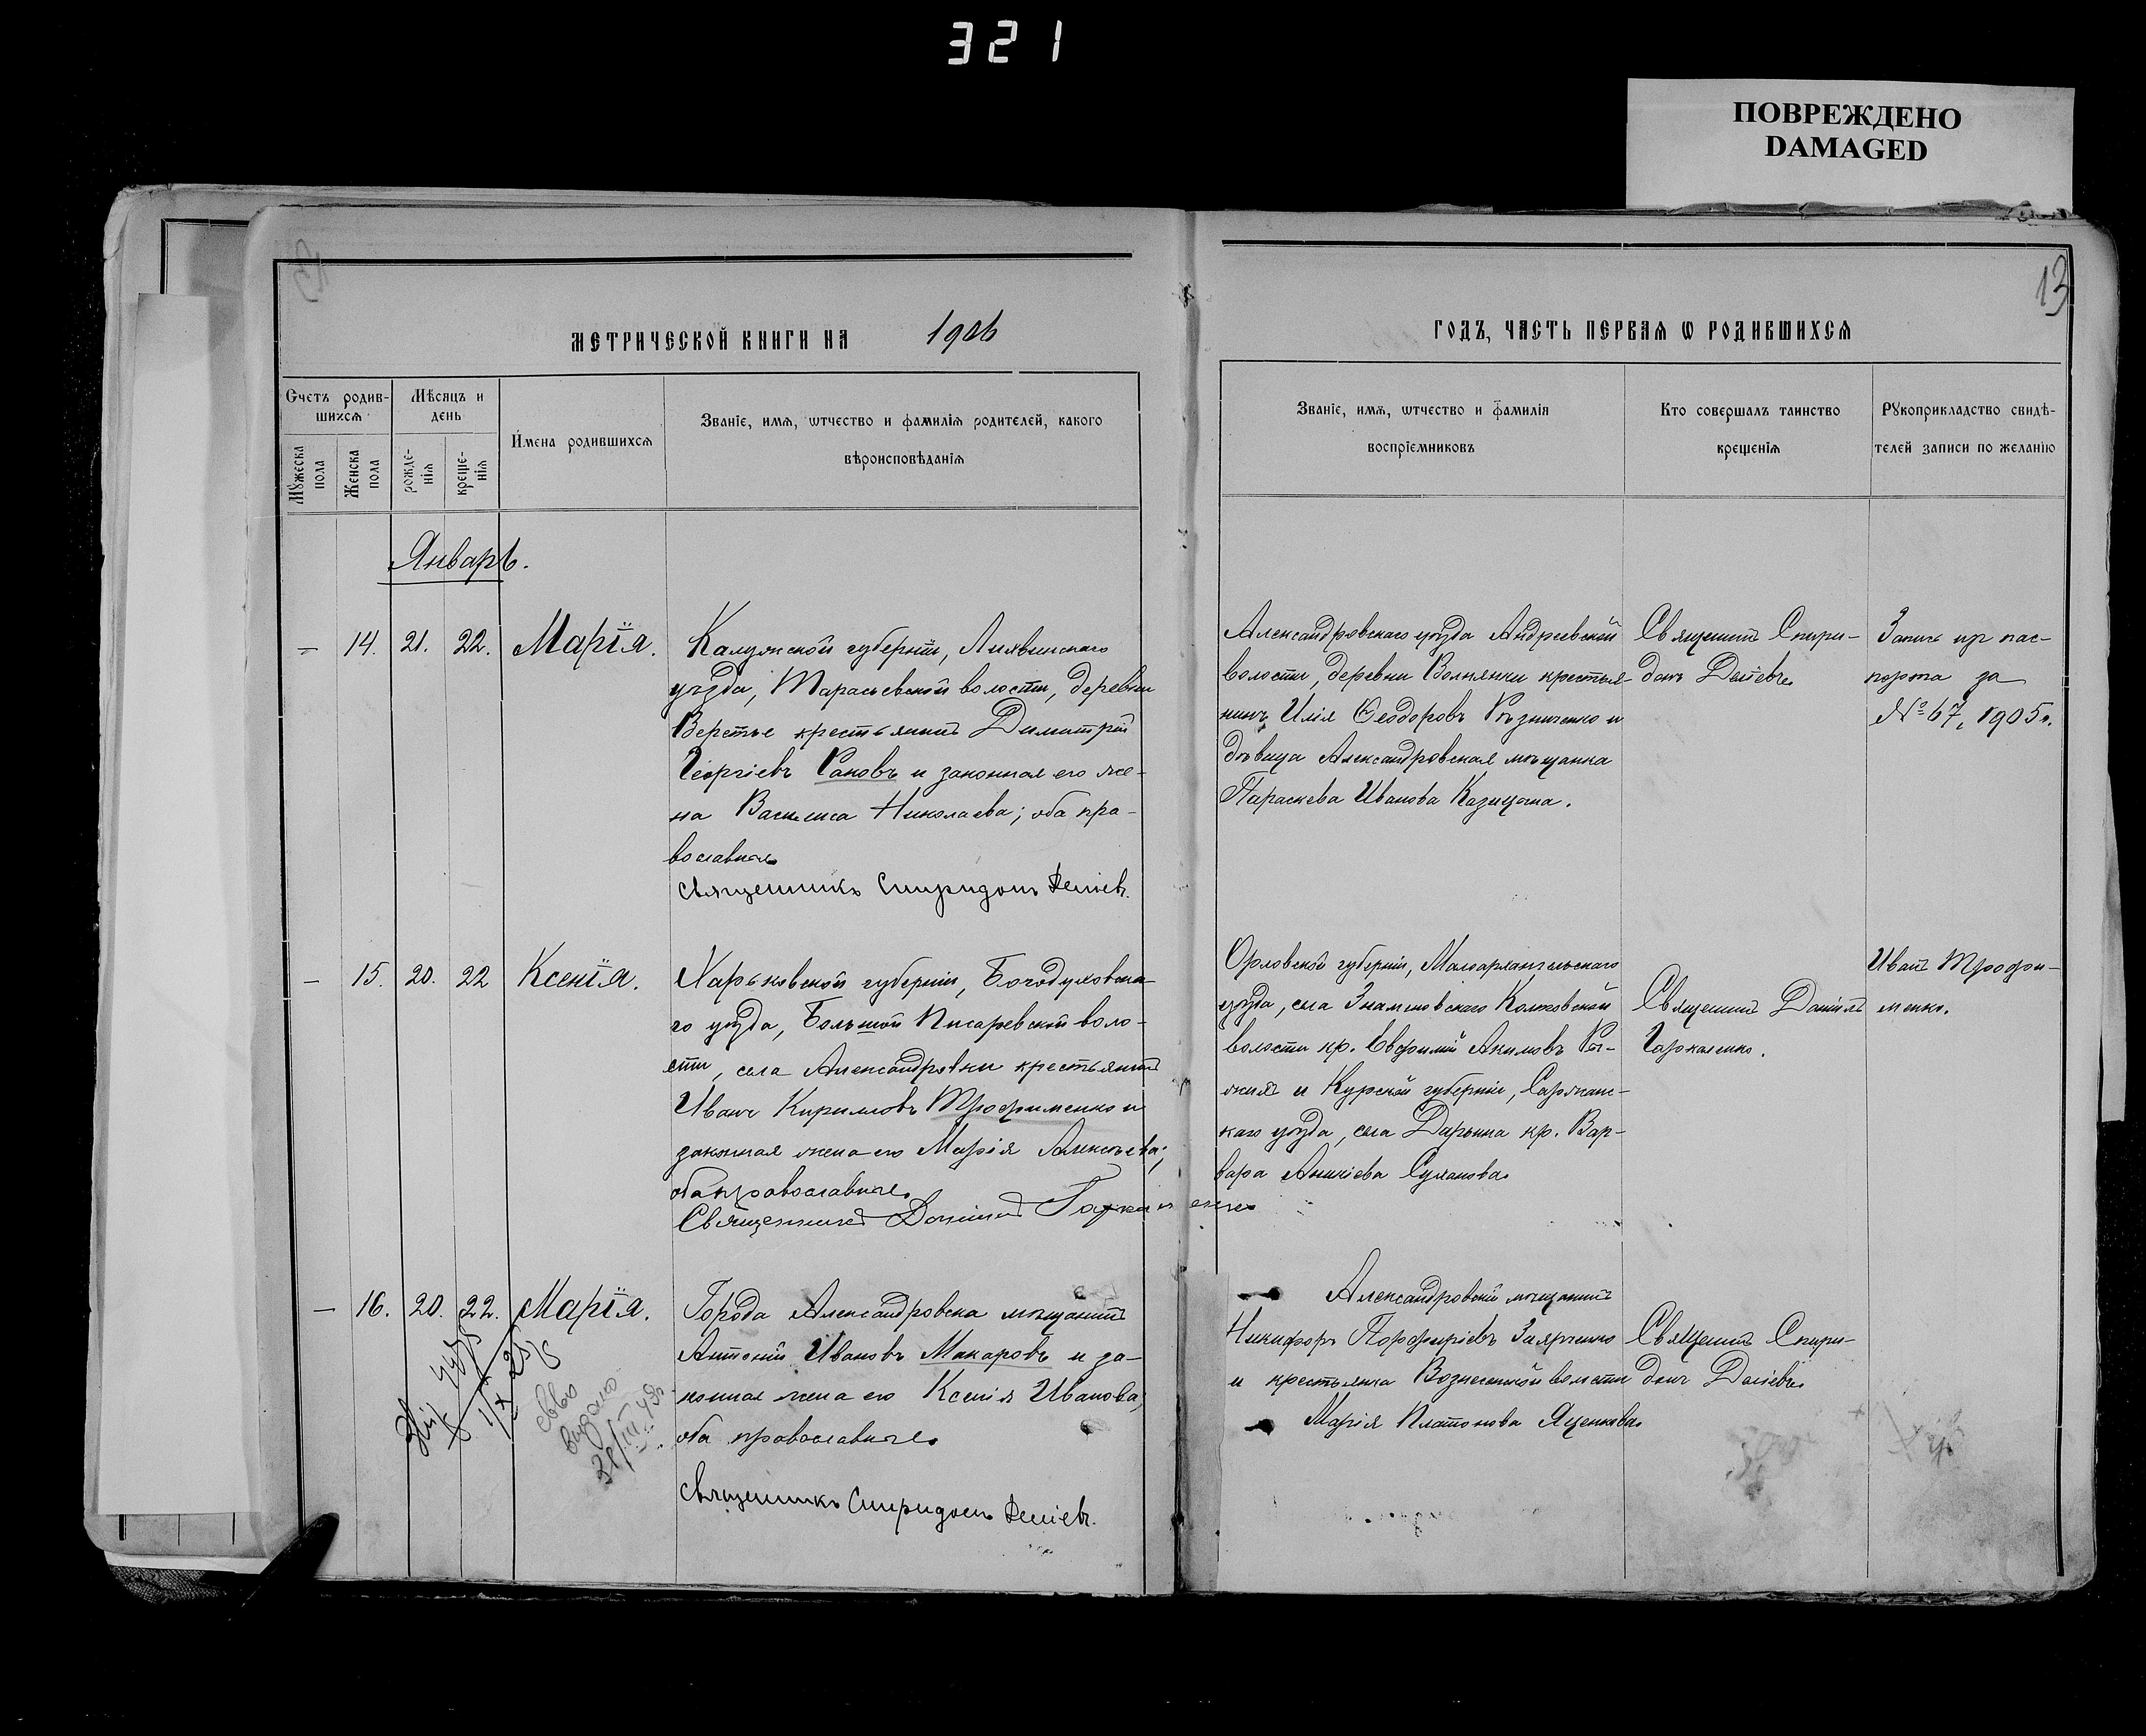 321
ПОВРЕЖДЕНО
DAMAGED
13
МЕТРИЧЕСКОЙ КНИГИ НА 1906
ГОДЪ, ЧАСТЬ ПЕРВАЯ Ѡ РОДИВШИХСЯ
Счетъ родив-
шихсѧ
Мѣсяцъ и
день
Мꙋжеска
пола
Женска
пола
рожде-
нія
креще-
нія
Имена родившихсѧ
Званіе, имѧ, ѿчество и фамилія родителей, какого
вѣроисповѣданія
Званіе, имѧ, ѿчество и фамилія
воспріемниковъ
Кто совершалъ таинство
крещенія
Рꙋкоприкладство свидѣ-
телей записи по желанію
Январь.
— 14. 21. 22. Марія.
Калужской губерніи, Лихвинскаго
уѣзда, Тарасьевской волости, деревни
Верстье крестьянинъ Димитрій
Георгіевъ Раковъ и законная его же-
на Василиса Николаева; оба пра-
вославные
Священникъ Спиридонъ
Александровскаго уѣзда Андреевской
волости, деревни Волнянки крестья-
нинъ Илія Ѳеодоровъ Рѣзниченко и
дѣвица Александровская мѣщанка
Параскева Иванова
Священникъ Спири-
донъ
Запись изъ пас-
порта за
№ 67, 1905 г.
— 15. 20. 22 Ксенія.
Харьковской губерніи, Богодуховска-
го уѣзда, Большой Писаревской воло-
сти, села Александровки крестьянинъ
Иванъ Кирилловъ Трофименко и
законная жена его Марія Алексѣева;
оба православные.
Священникъ Даніилъ
Орловской губерніи, Малоархангельскаго
уѣзда, села Знаменовскаго
волости кр. Евфимій Акимовъ
и Курской губерніи,
каго уѣзда, села Дарьина кр. Вар-
вара
Священникъ Даніилъ
Иванъ Трофи-
менко.
— 16. 20. 22. Марія.
Города Александровска мѣщанинъ
Антоній Ивановъ Макаровъ и за-
конная жена его Ксенія Иванова,
оба православные
Священникъ Спиридонъ
Александровскій мѣщанинъ
Никифоръ Порфиріевъ
и крестьянка Вознесенской волости
Марія Платонова Яценкова
Священникъ Спири-
донъ
видано